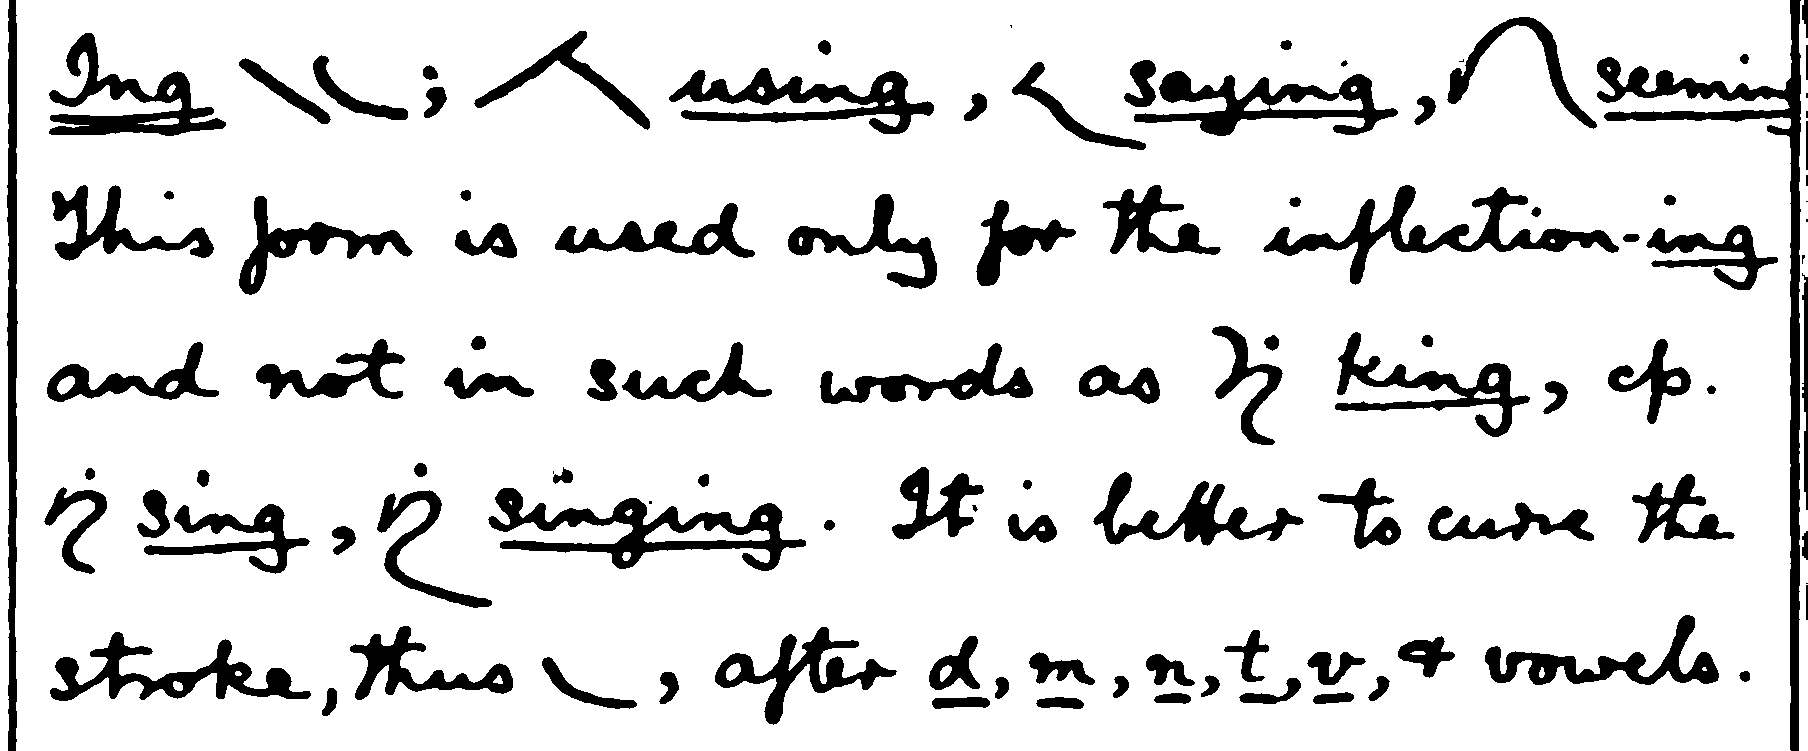 Ing ; using, saying, seeming
This form is used only for the inflection-ing
and not in such words as king, cp.
sing, singing. It is better to curve the
stroke, thus , after d, m, n, t, v, & vowels.